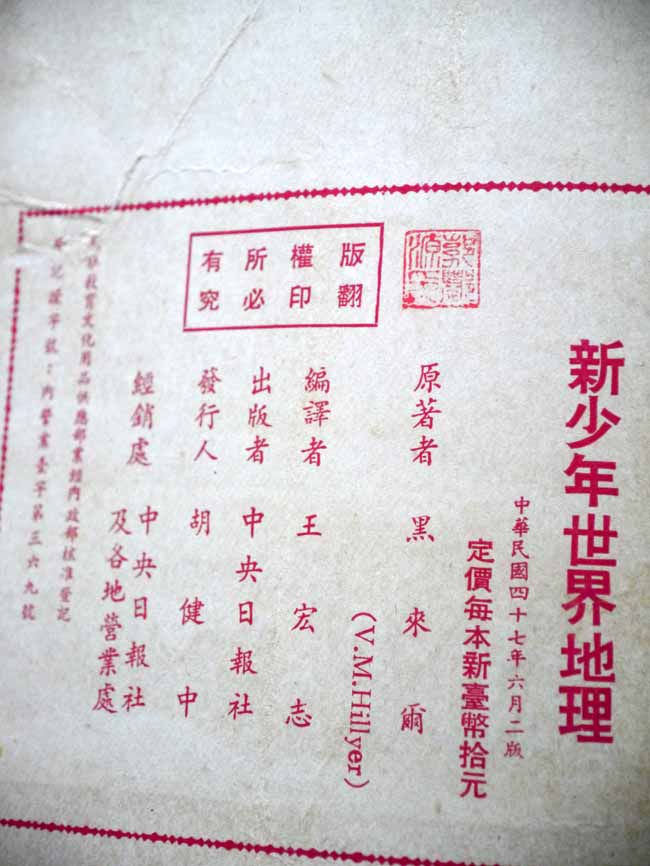 新少年世界地理
中華民國四十七年六月二版
定價每本新臺幣拾元
原著者 黑來爾
(V.M.Hillyer)
版權所有
翻印必究
編譯者 王宏志
出版者 中央日報社
發行人 胡健中
經銷處 中央日報社
及各地營業處
教育文化用品供應部業經內政部核准登記
登記證字號：內警業臺字第三六九號